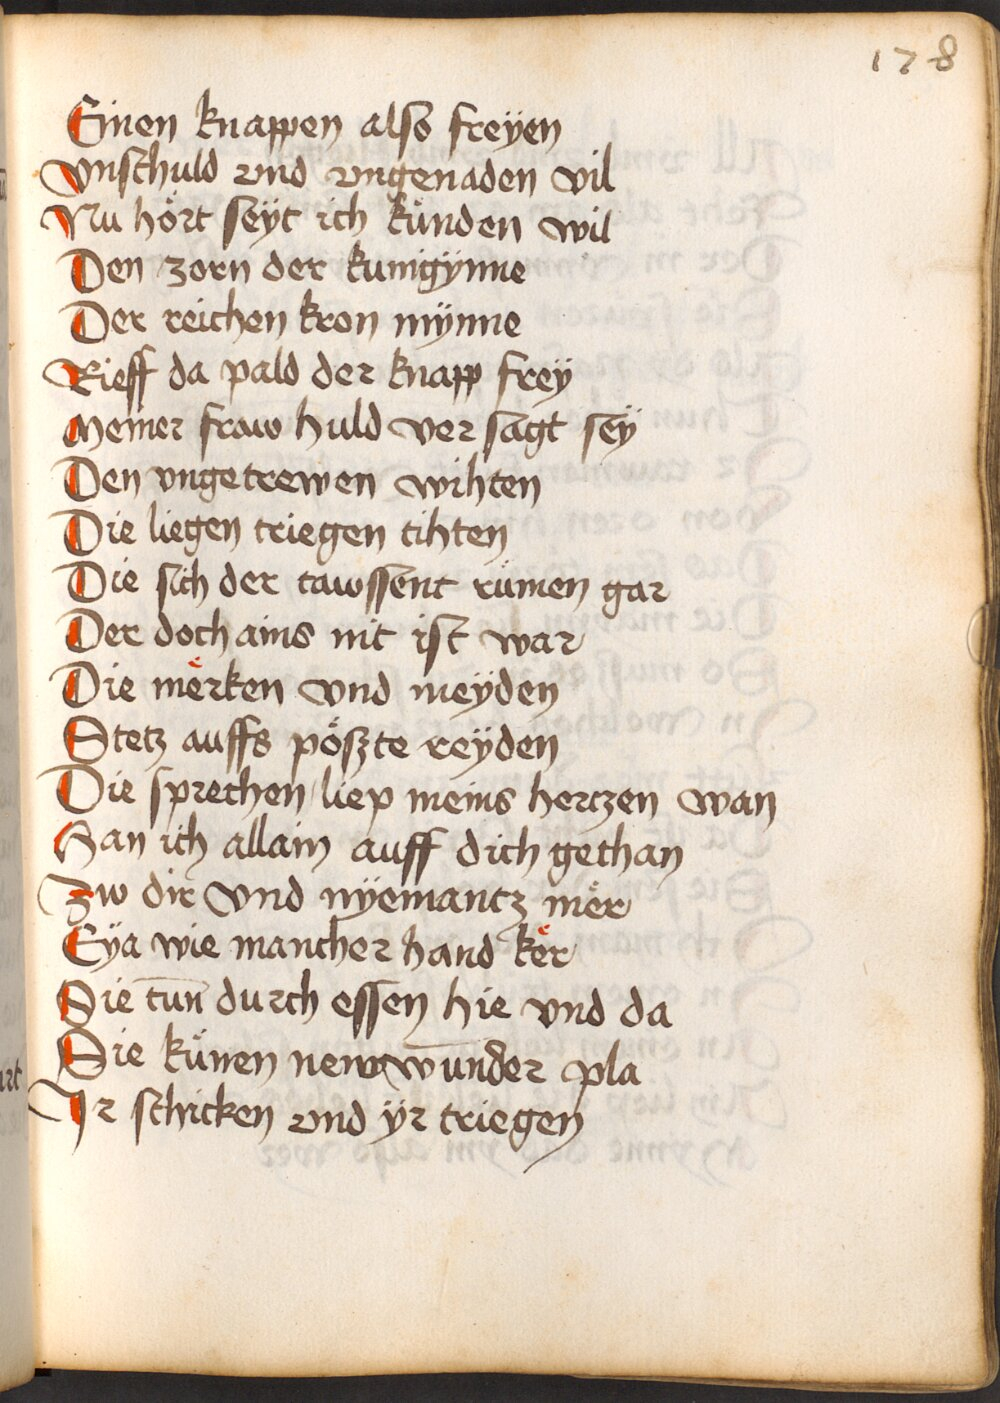 178
Einen knappen also freÿen
vnschuld vnd vngenaden vil
Nu hört seÿt ich künden wil
Den zorn der kunigÿnne
Der reichen kron mÿnne
Rieff da pald der knapp freÿ
Meiner fraw huld ver sagt seÿ
Den vngetrewen wihten
Die liegen triegen tihten
Die sich der tawssent rümen gar
Der doch ains nit ist war
Die mërken vnd meÿden
Stetz auffs pöszte reÿden
Die sprechen liep meins hertzen wan
Han ich allain auff dich gethan
Zw dir vnd nÿemantz mër
Eÿa wie mancher hand kër
Sie tun̄ durch essen hie vnd da
Die künen new wunder pla
Ir schicken vnd ÿr triegen